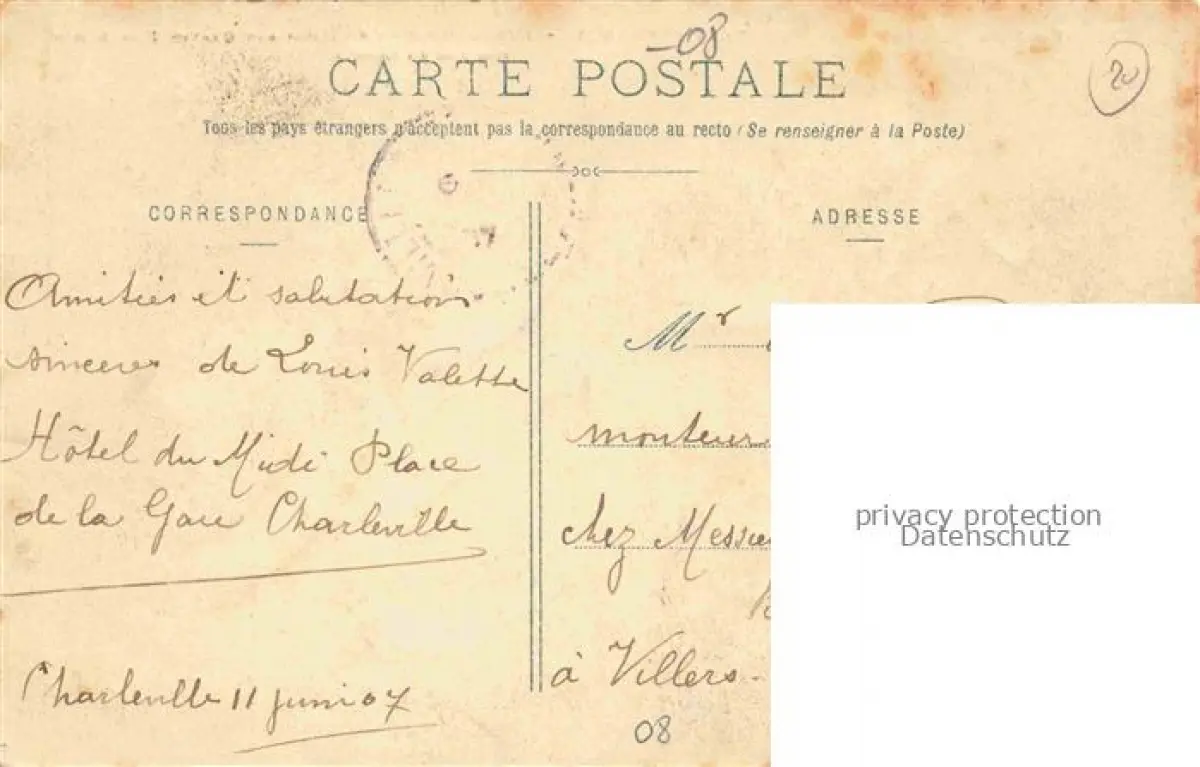 -08
20
CARTE POSTALE
Tous les pays étrangers n'acceptent pas la correspondance au recto (Se renseigner à la Poste)
CORRESPONDANCE
Amitiés et salutations
sinceres de Louis Valette
Hôtel du Midi Place
de la Gare Charleville
Charleville 11 juin 07
ADRESSE
Mr
monteur
chez Messieu
à Villers-
08
privacy protection
Datenschutz